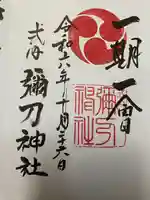 一期一会
令和六年十月二十六日
式内 彌刀神社
彌刀神社